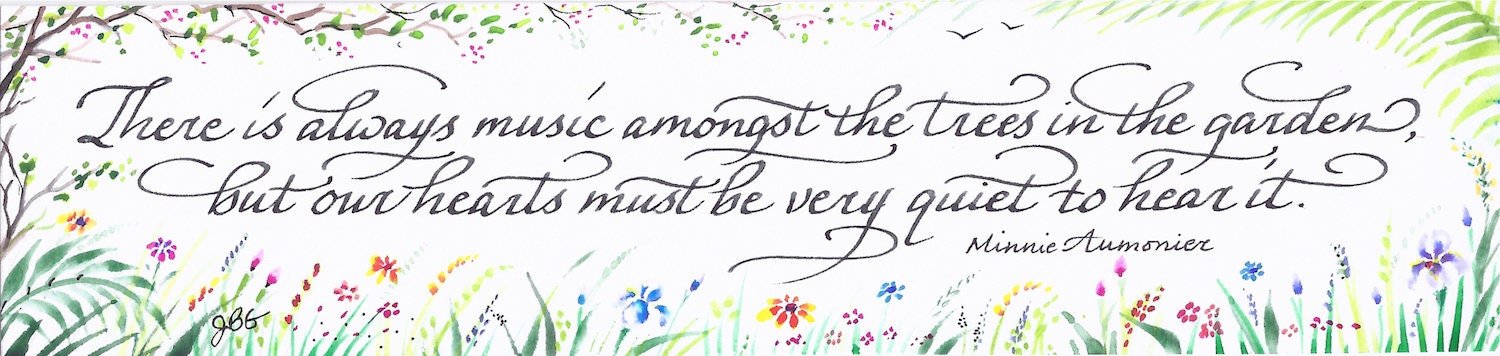 There is always music amongst the trees in the garden,
but our hearts must be very quiet to hear it.
Minnie Aumonier
JBG